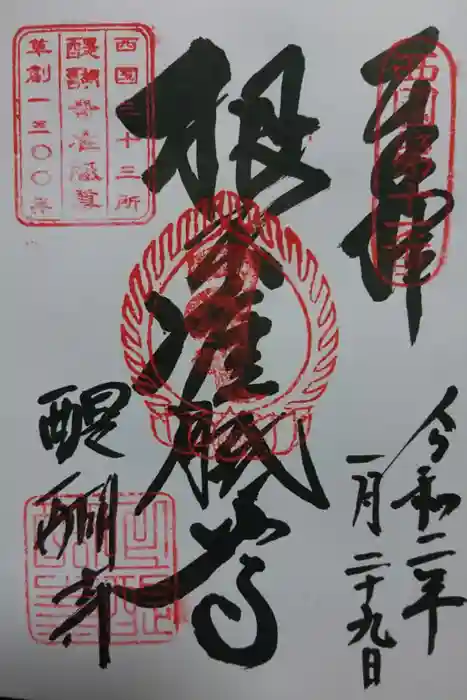 西国第十一番
令和二年
一月二十九日
根本准胝尊
西国三十三所
醍醐寺准胝尊
草創一三〇〇年
醍醐寺